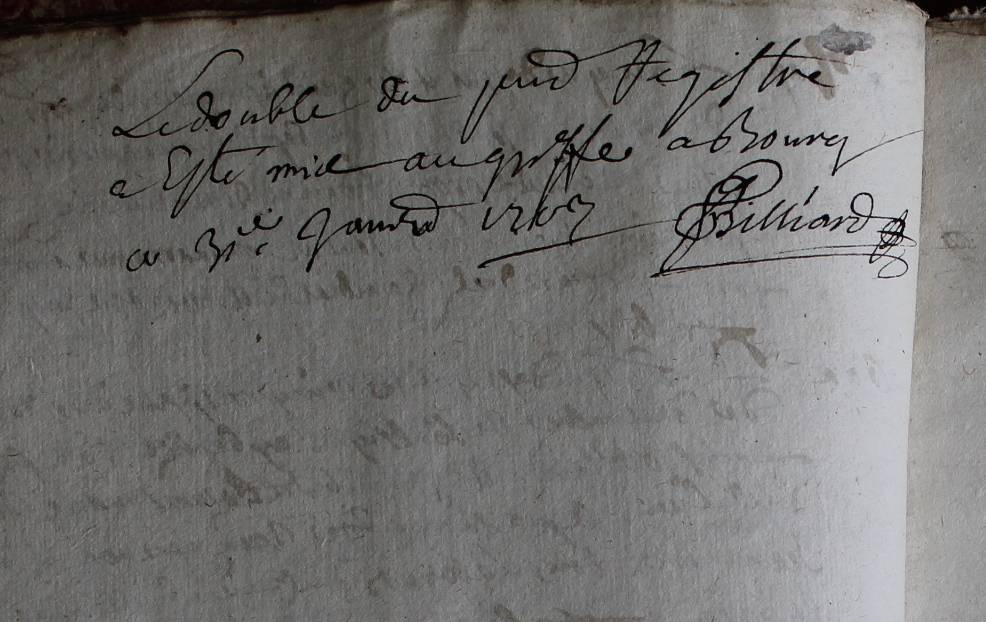 Le double du pnd Registre
a Esté mis au greffe a Bourg
ce 31e Janvier
Billiard